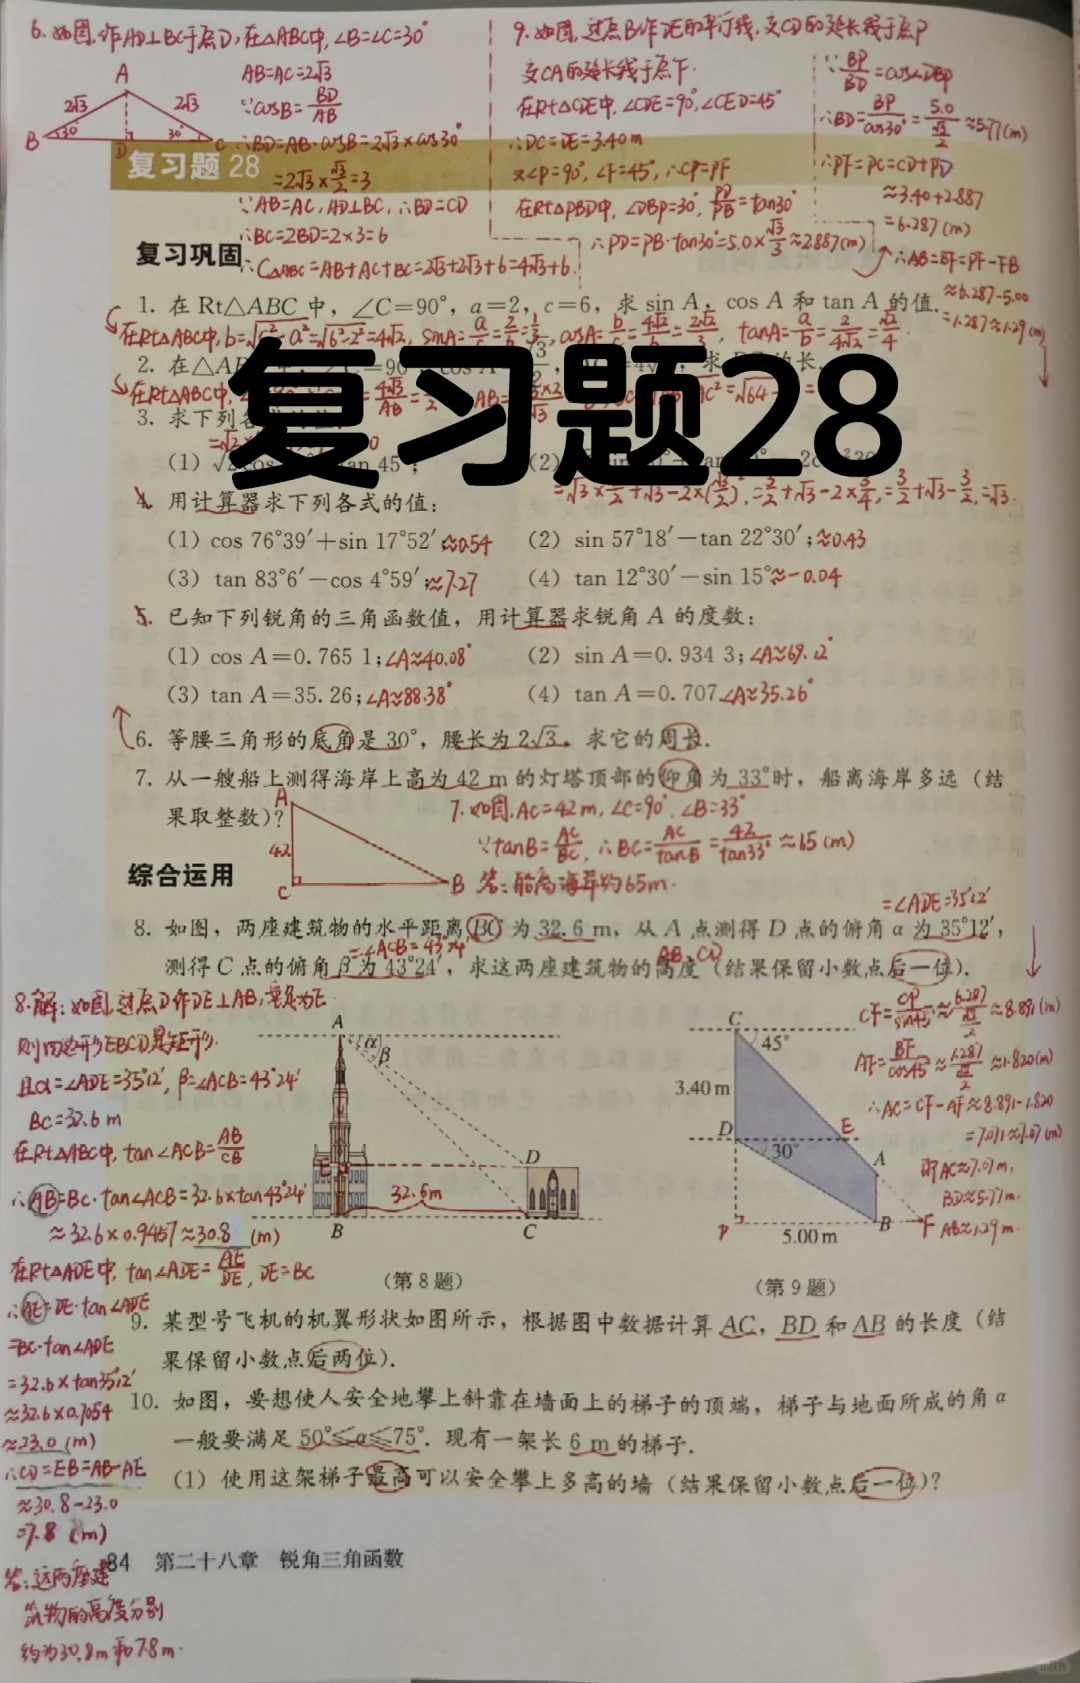 6. 如图,作AD⊥BC于点D,在△ABC中,∠B=∠C=30°
AB=AC=2√3
∵cosB=BD/AB
∴BD=AB·cosB=2√3×cos30°
=2√3×√3/2=3
∵AB=AC,AD⊥BC,∴BD=CD
∴BC=2BD=2×3=6
∴C△ABC=AB+AC+BC=2√3+2√3+6=4√3+6.
A
2√3
2√3
B
30°
30°
D
C
9. 如图,过点B作DE的平行线,交CD的延长线于点P
交CA的延长线于点F.
在Rt△CDE中,∠CDE=90°,∠CED=45°
∴DC=DE=3.40m
又∠P=90°,∠F=45°,∴CP=PF
在Rt△PBD中,∠DBP=30°,PD/PB=tan30°
∴PD=PB·tan30°=5.0×√3/3≈2.887(m)
∵BP/BD=cos∠DBP
∴BD=BP/cos30°=5.0/(√3/2)≈5.77(m)
∴PF=PC=CD+PD
≈3.40+2.887
=6.287(m)
∴AB=BF=PF-PB
≈6.287-5.00
=1.287≈1.29(m)
复习题 28
复习巩固
1. 在 Rt△ABC 中,∠C=90°,a=2,c=6,求 sin A,cos A 和 tan A 的值.
在Rt△ABC中,b=√c²-a²=√6²-2²=4√2,sinA=a/c=2/6=1/3,cosA=b/c=4√2/6=2√2/3,tanA=a/b=2/4√2=√2/4.
复习题28
3. 求下列
4. 用计算器求下列各式的值:
=√3×√3/2+√3-2×(√3/2)²,=3/2+√3-2×3/4,=3/2+√3-3/2,=√3.
(1) cos 76°39′+sin 17°52′;≈0.54
(2) sin 57°18′-tan 22°30′;≈0.43
(3) tan 83°6′-cos 4°59′;≈7.27
(4) tan 12°30′-sin 15°.≈-0.04
5. 已知下列锐角的三角函数值,用计算器求锐角 A 的度数:
(1) cos A=0.765 1;∠A≈40.08°
(2) sin A=0.934 3;∠A≈69.12°
(3) tan A=35.26;∠A≈88.38°
(4) tan A=0.707.∠A≈35.26°
6. 等腰三角形的底角是 30°,腰长为 2√3,求它的周长.
7. 从一艘船上测得海岸上高为 42 m 的灯塔顶部的仰角为 33°时,船离海岸多远(结
果取整数)?
A
42
C
B
7. 如图,AC=42m,∠C=90°,∠B=33°
∵tanB=AC/BC,∴BC=AC/tanB=42/tan33°≈65(m)
答:船离海岸约65m.
综合运用
=∠ADE=35°12′
8. 如图,两座建筑物的水平距离 BC 为 32.6 m,从 A 点测得 D 点的俯角 α 为 35°12′,
=∠ACB=43°24′
AB、CD
测得 C 点的俯角 β 为 43°24′,求这两座建筑物的高度(结果保留小数点后一位).
8.解:如图,过点D作DE⊥AB,垂足为E.
则四边形EBCD是矩形.
且α=∠ADE=35°12′,β=∠ACB=43°24′
BC=32.6m
在Rt△ABC中,tan∠ACB=AB/CB
∴AB=BC·tan∠ACB=32.6×tan43°24′
≈32.6×0.9457≈30.8 (m)
在Rt△ADE中,tan∠ADE=AE/DE,DE=BC
∴AE=DE·tan∠ADE
=BC·tan∠ADE
=32.6×tan35°12′
≈32.6×0.7054
≈23.0 (m)
∴CD=EB=AB-AE
≈30.8-23.0
=7.8 (m)
答:这两座建
筑物的高度分别
约为30.8m和7.8m.
A
α
β
E
D
32.6m
B
C
(第 8 题)
C
45°
3.40 m
D
E
30°
A
P
5.00 m
B
F
(第 9 题)
CF=CP/sin45°≈6.287/(√2/2)≈8.891(m)
AF=BF/cos45°≈1.287/(√2/2)≈1.820(m)
∴AC=CF-AF≈8.891-1.820
=7.071≈7.07(m)
即AC≈7.07m,
BD≈5.77m.
AB≈1.29m.
9. 某型号飞机的机翼形状如图所示,根据图中数据计算 AC,BD 和 AB 的长度(结
果保留小数点后两位).
10. 如图,要想使人安全地攀上斜靠在墙面上的梯子的顶端,梯子与地面所成的角 α
一般要满足 50°≤α≤75°. 现有一架长 6 m 的梯子.
(1) 使用这架梯子最高可以安全攀上多高的墙(结果保留小数点后一位)?
84 第二十八章 锐角三角函数